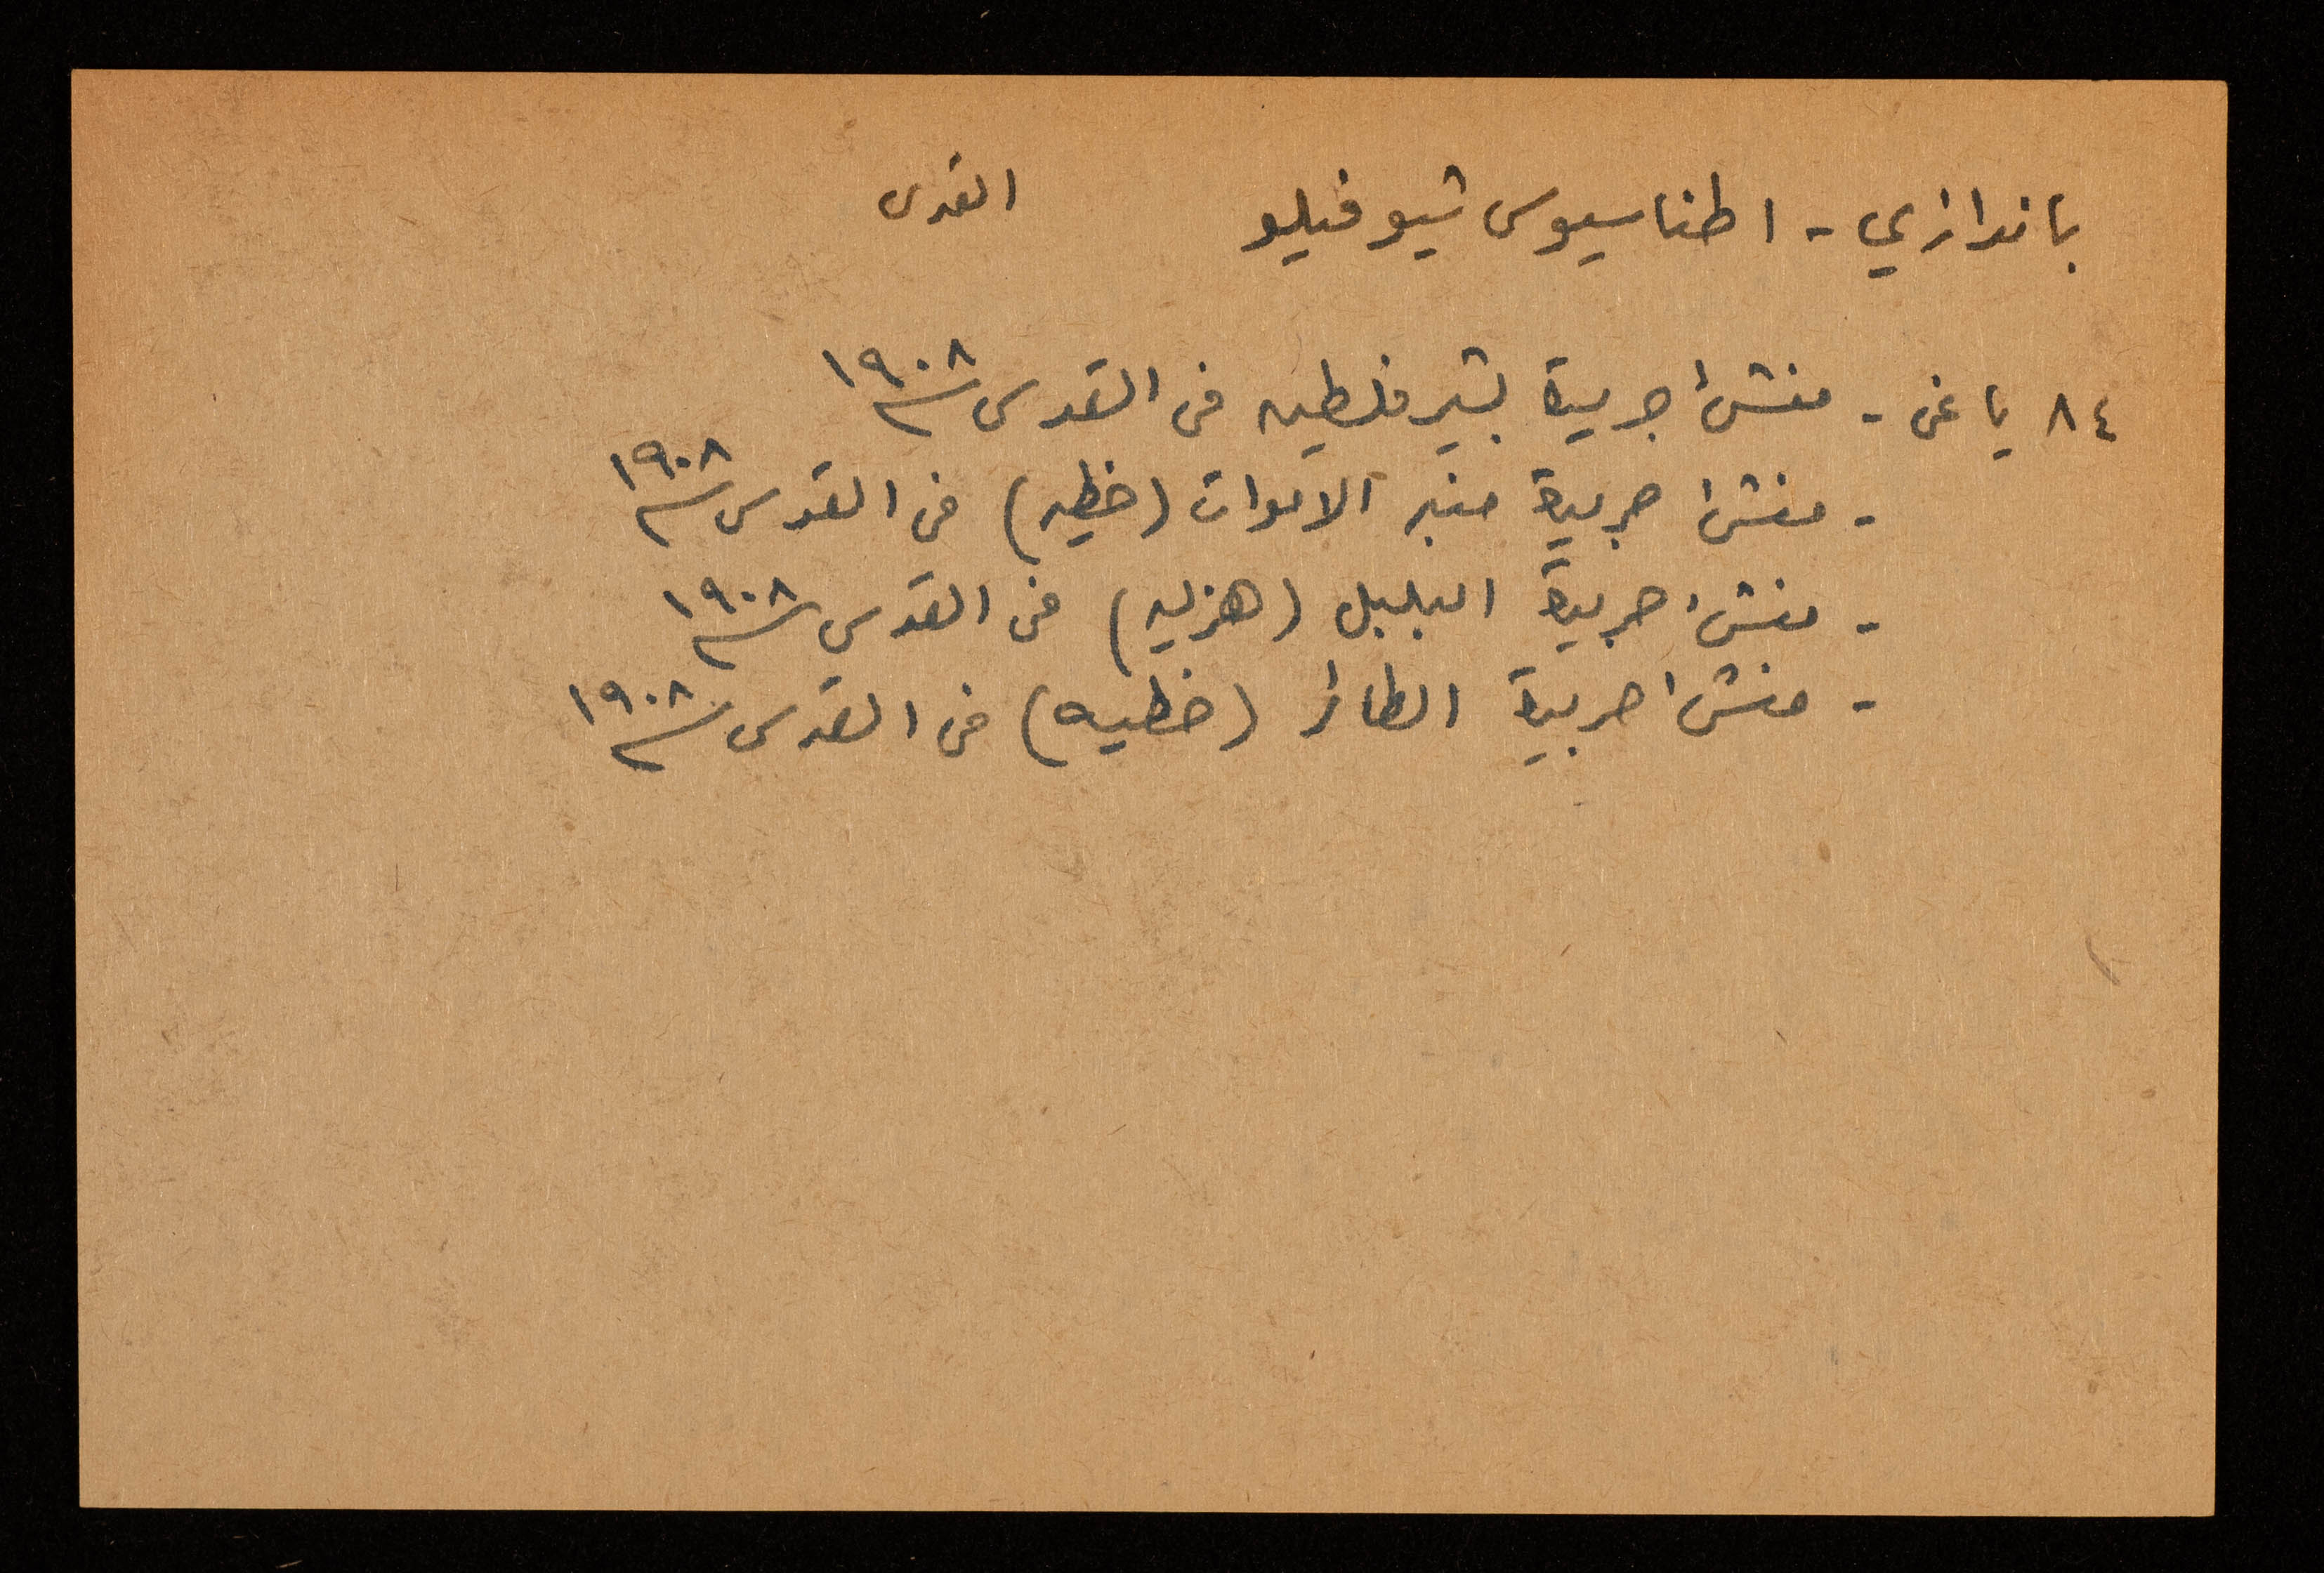 باندازي - اطناسيوس ثيوفيلو القدس
٨٤ ياغي - منشئ جريدة بشير فلسطين في القدس سنة ١٩٠٨
- منشئ جريدة منبر الاموات (خطية) في القدس سنة ١٩٠٨
- منشئ جريدة البلبل (هزلية) في القدس سنة ١٩٠٨
- منشئ جريدة الطائر (خطيه) في القدس سنة ١٩٠٨